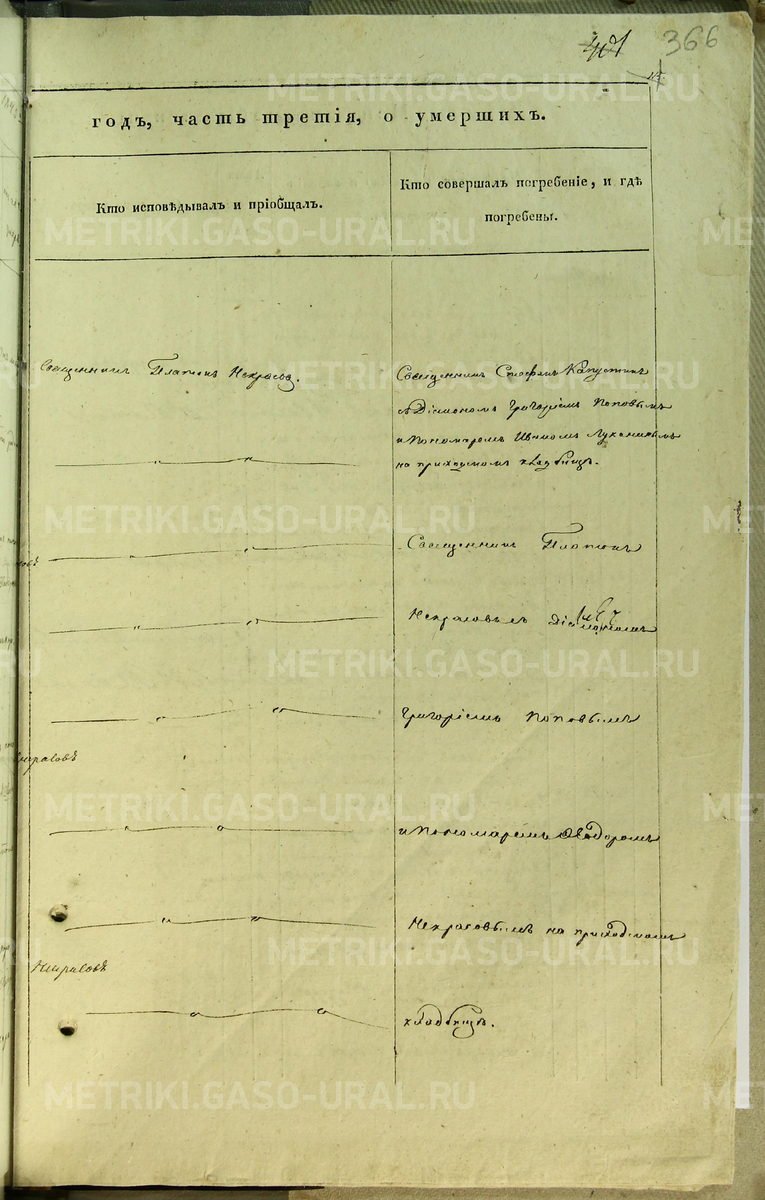 401 366
годъ, часть третія, о умершихъ.
Кто исповѣдывалъ и пріобщалъ.
Кто совершалъ погребеніе, и гдѣ
погребены.
Священникъ Платонъ Некрасов.
Священникъ Стефанъ Капустинъ
съ Діакономъ Григоріемъ Поповымъ
и Пономаремъ Иваномъ Луканинымъ
на приходскомъ кладбищѣ.
Священникъ Платонъ
Некрасовъ съ Діакономъ
Григоріемъ Поповымъ
и Пономаремъ Ѳедоромъ
Некрасовымъ на приходскомъ
кладбищѣ.
METRIKI.GASO-URAL.RU